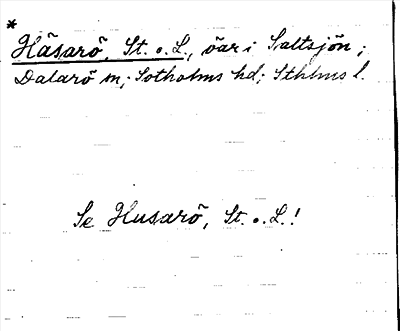 *
Häsarö, St. o. L., öar i Saltsjön;
Dalarö sn; Sotholms hd; Sthlms l.
Se Husarö, St. o. L.!